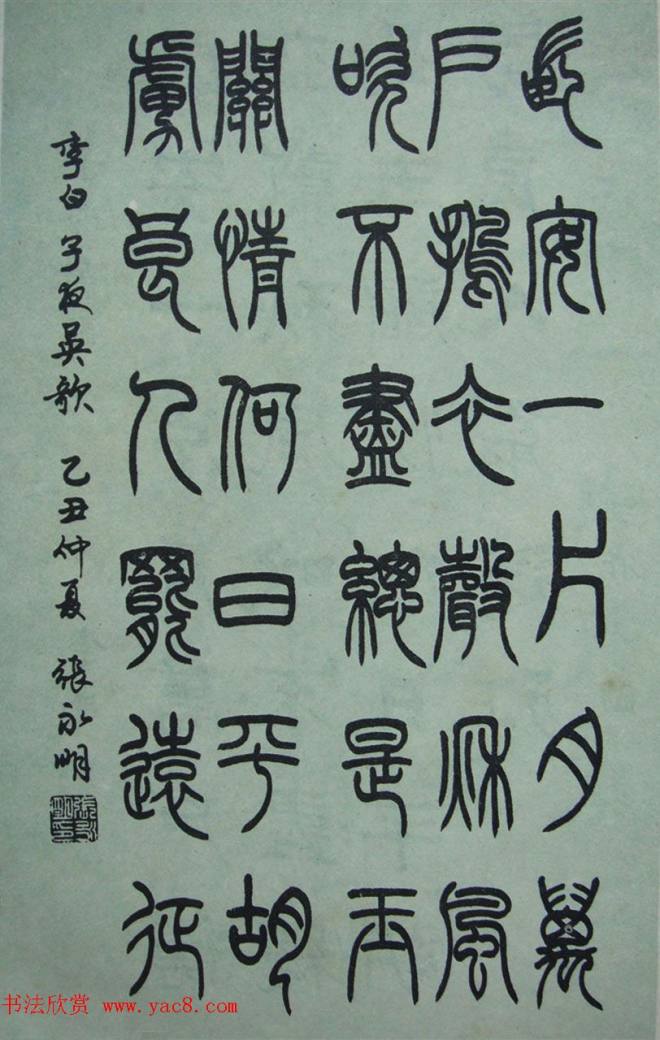 長安一片月萬
戶擣衣聲秋風
吹不盡總是玉
關情何日平胡
虜良人罷遠征
李白子夜吳歌 乙丑仲夏 張永明
張永明印
书法欣赏 www.yac8.com